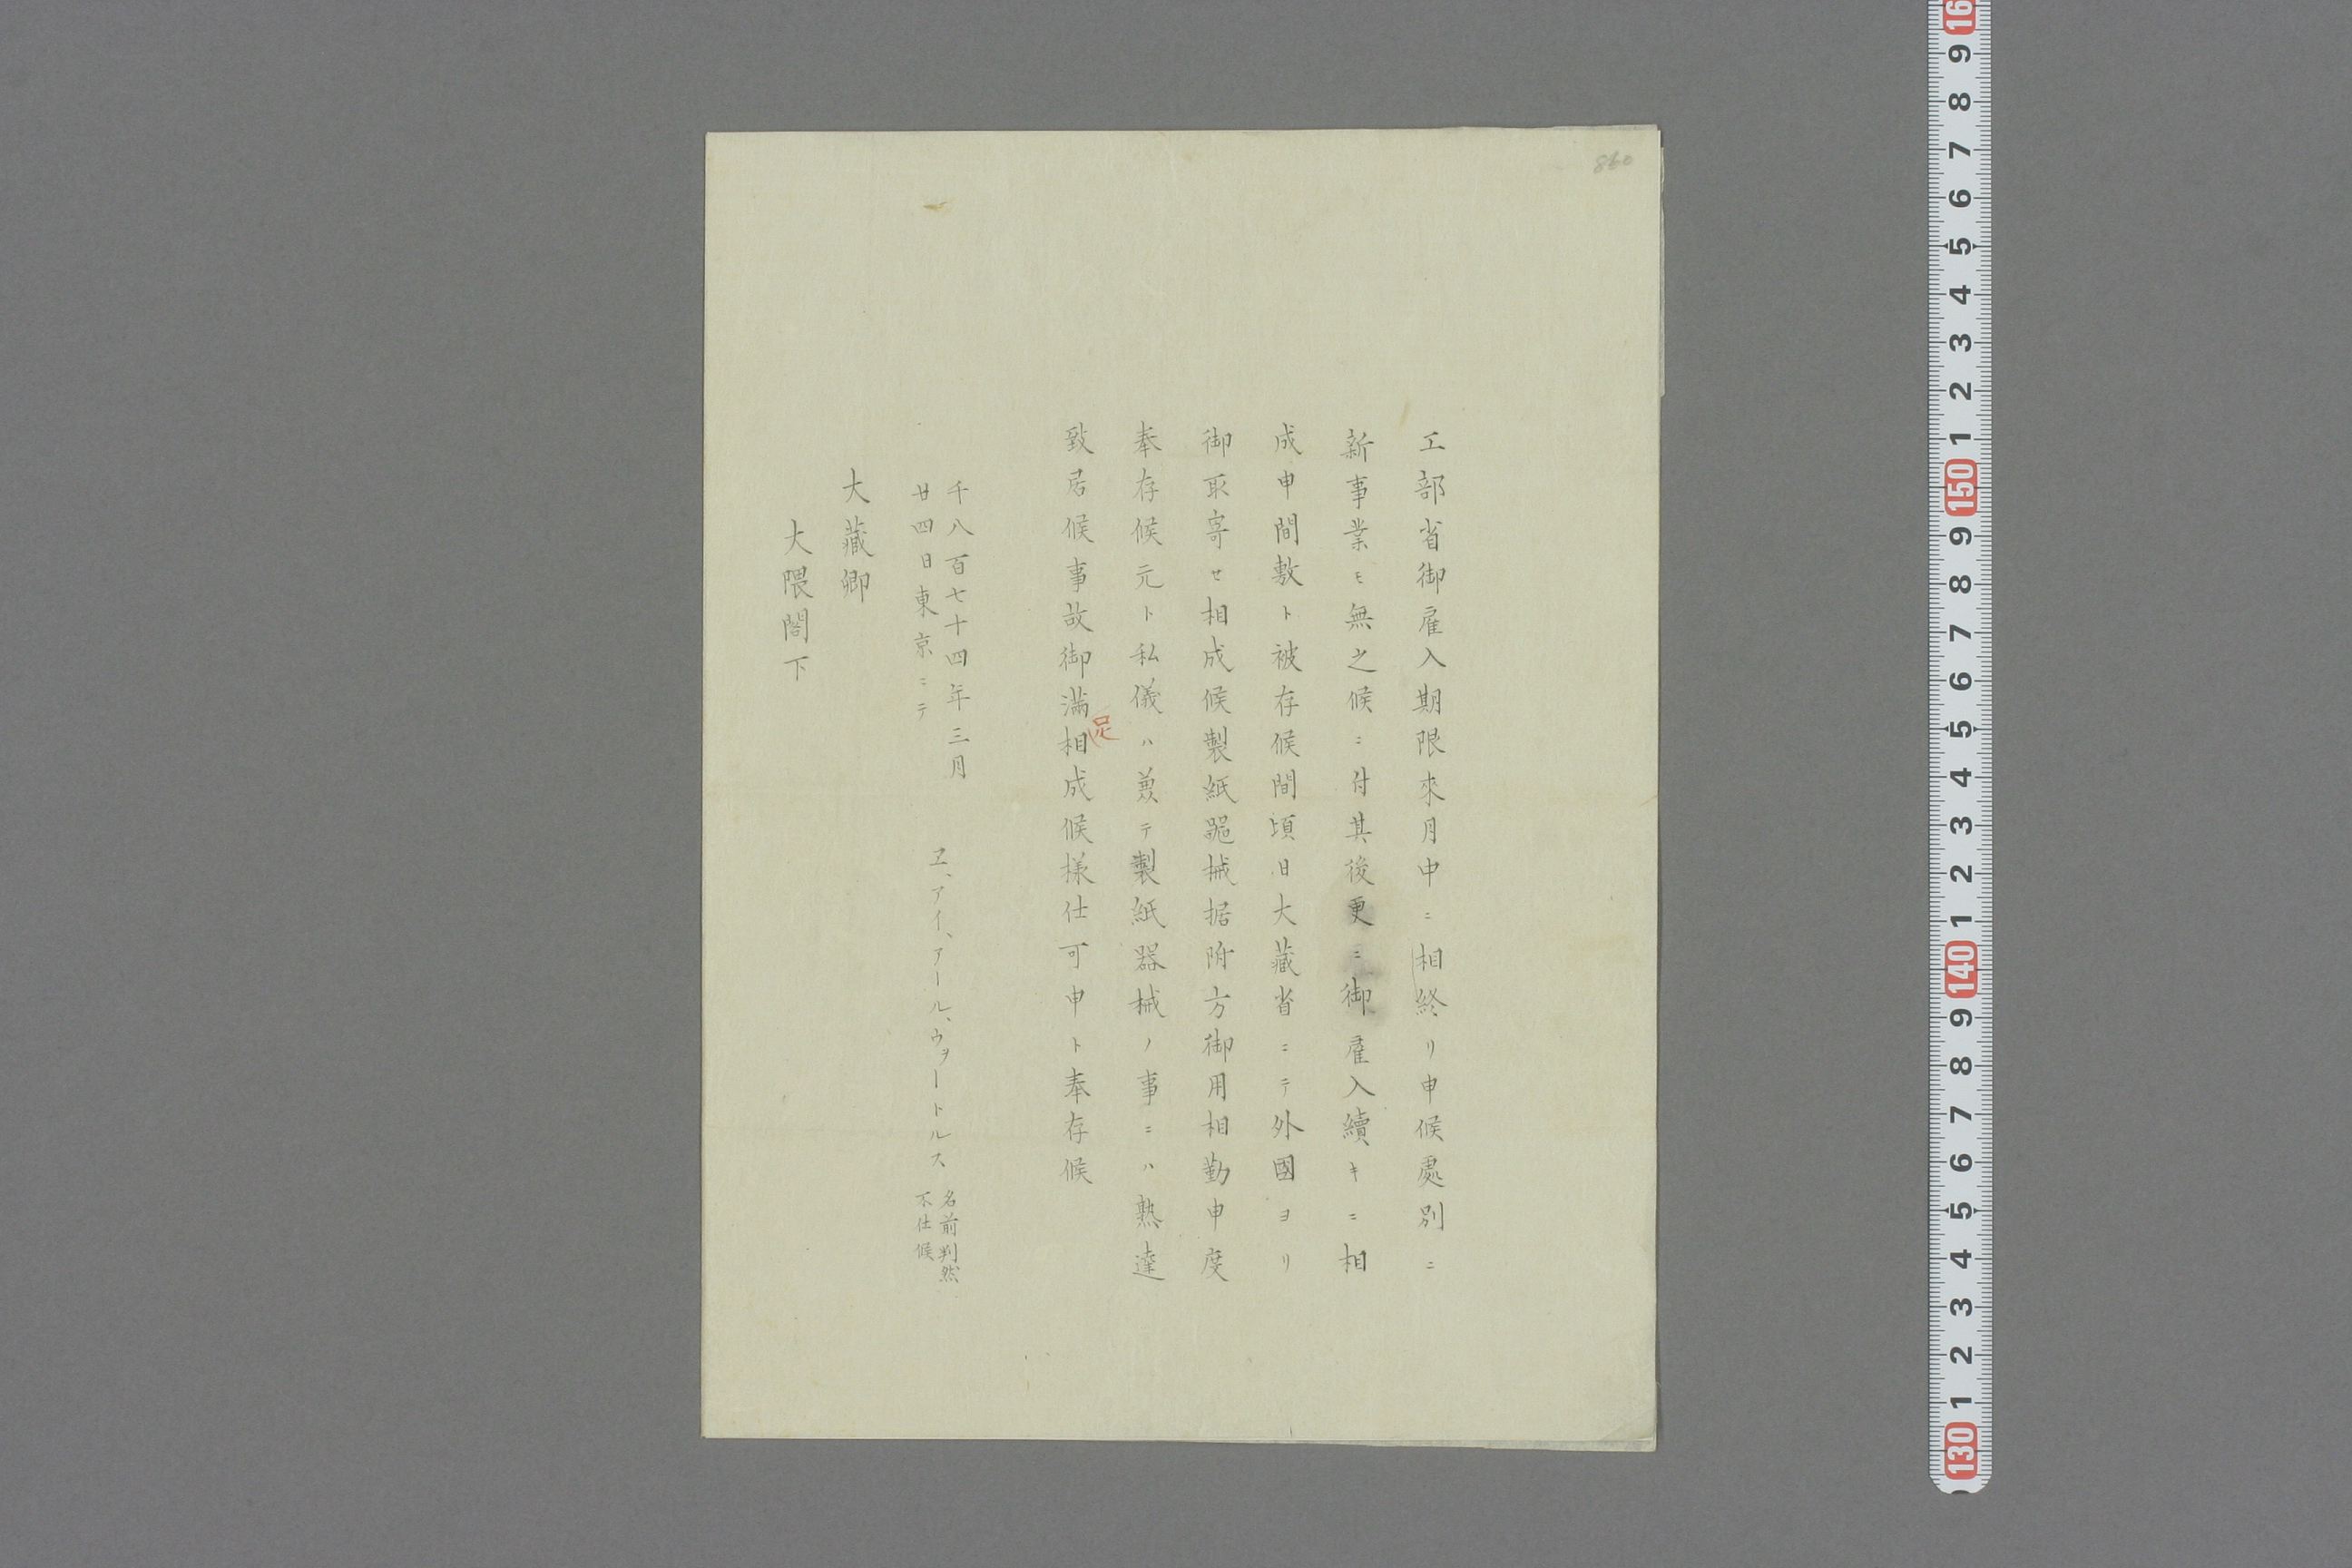 860
工部省御雇入期限來月中ニ相終リ申候處別ニ
新事業モ無之候ニ付其後更ニ御雇入續キニ相
成申間敷ト被存候間頃日大藏省ニテ外國ヨリ
御取寄セ相成候製紙噐械据附方御用相勤申度
奉存候元ト私儀ハ兼テ製紙器械ノ事ニハ熟達
致居候事故御滿相成候様仕可申ト奉存候
足
千八百七十四年三月
廿四日東京ニテ
ヱ、アイ、アール、ウヲートルス
名前判然
不仕候
大藏卿
大隈閤下
16 9 8 7 6 5 4 3 2 1 150 9 8 7 6 5 4 3 2 1 140 9 8 7 6 5 4 3 2 1 130